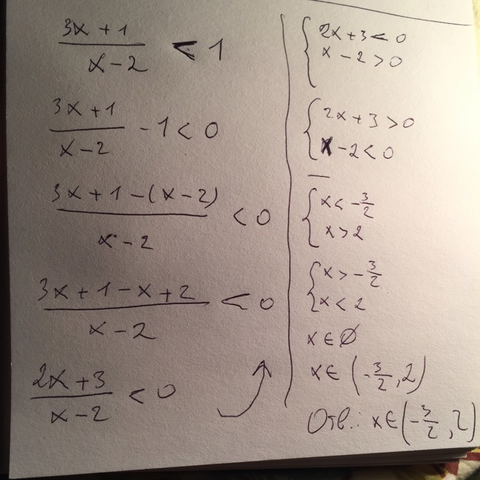 (3x+1)/(x-2) < 1
(3x+1)/(x-2) - 1 < 0
(3x+1-(x-2))/(x-2) < 0
(3x+1-x+2)/(x-2) < 0
(2x+3)/(x-2) < 0
{2x+3 < 0
x-2 > 0
{2x+3 > 0
x-2 < 0
{x < -3/2
x > 2
{x > -3/2
x < 2
x ∈ ∅
x ∈ (-3/2, 2)
Отв.: x ∈ (-3/2, 2)